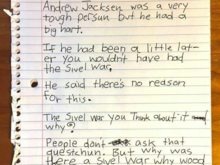 Andrew Jacksen was a very
tough persun but he had a
big hart.
If he had been a little lat-
er you wouldn't have had
the Sivel War.
He said there's no reason
for this.
The Sivel War you think about it
why?
People dont ask that
questchun. But why was
there a Sivel War why wood